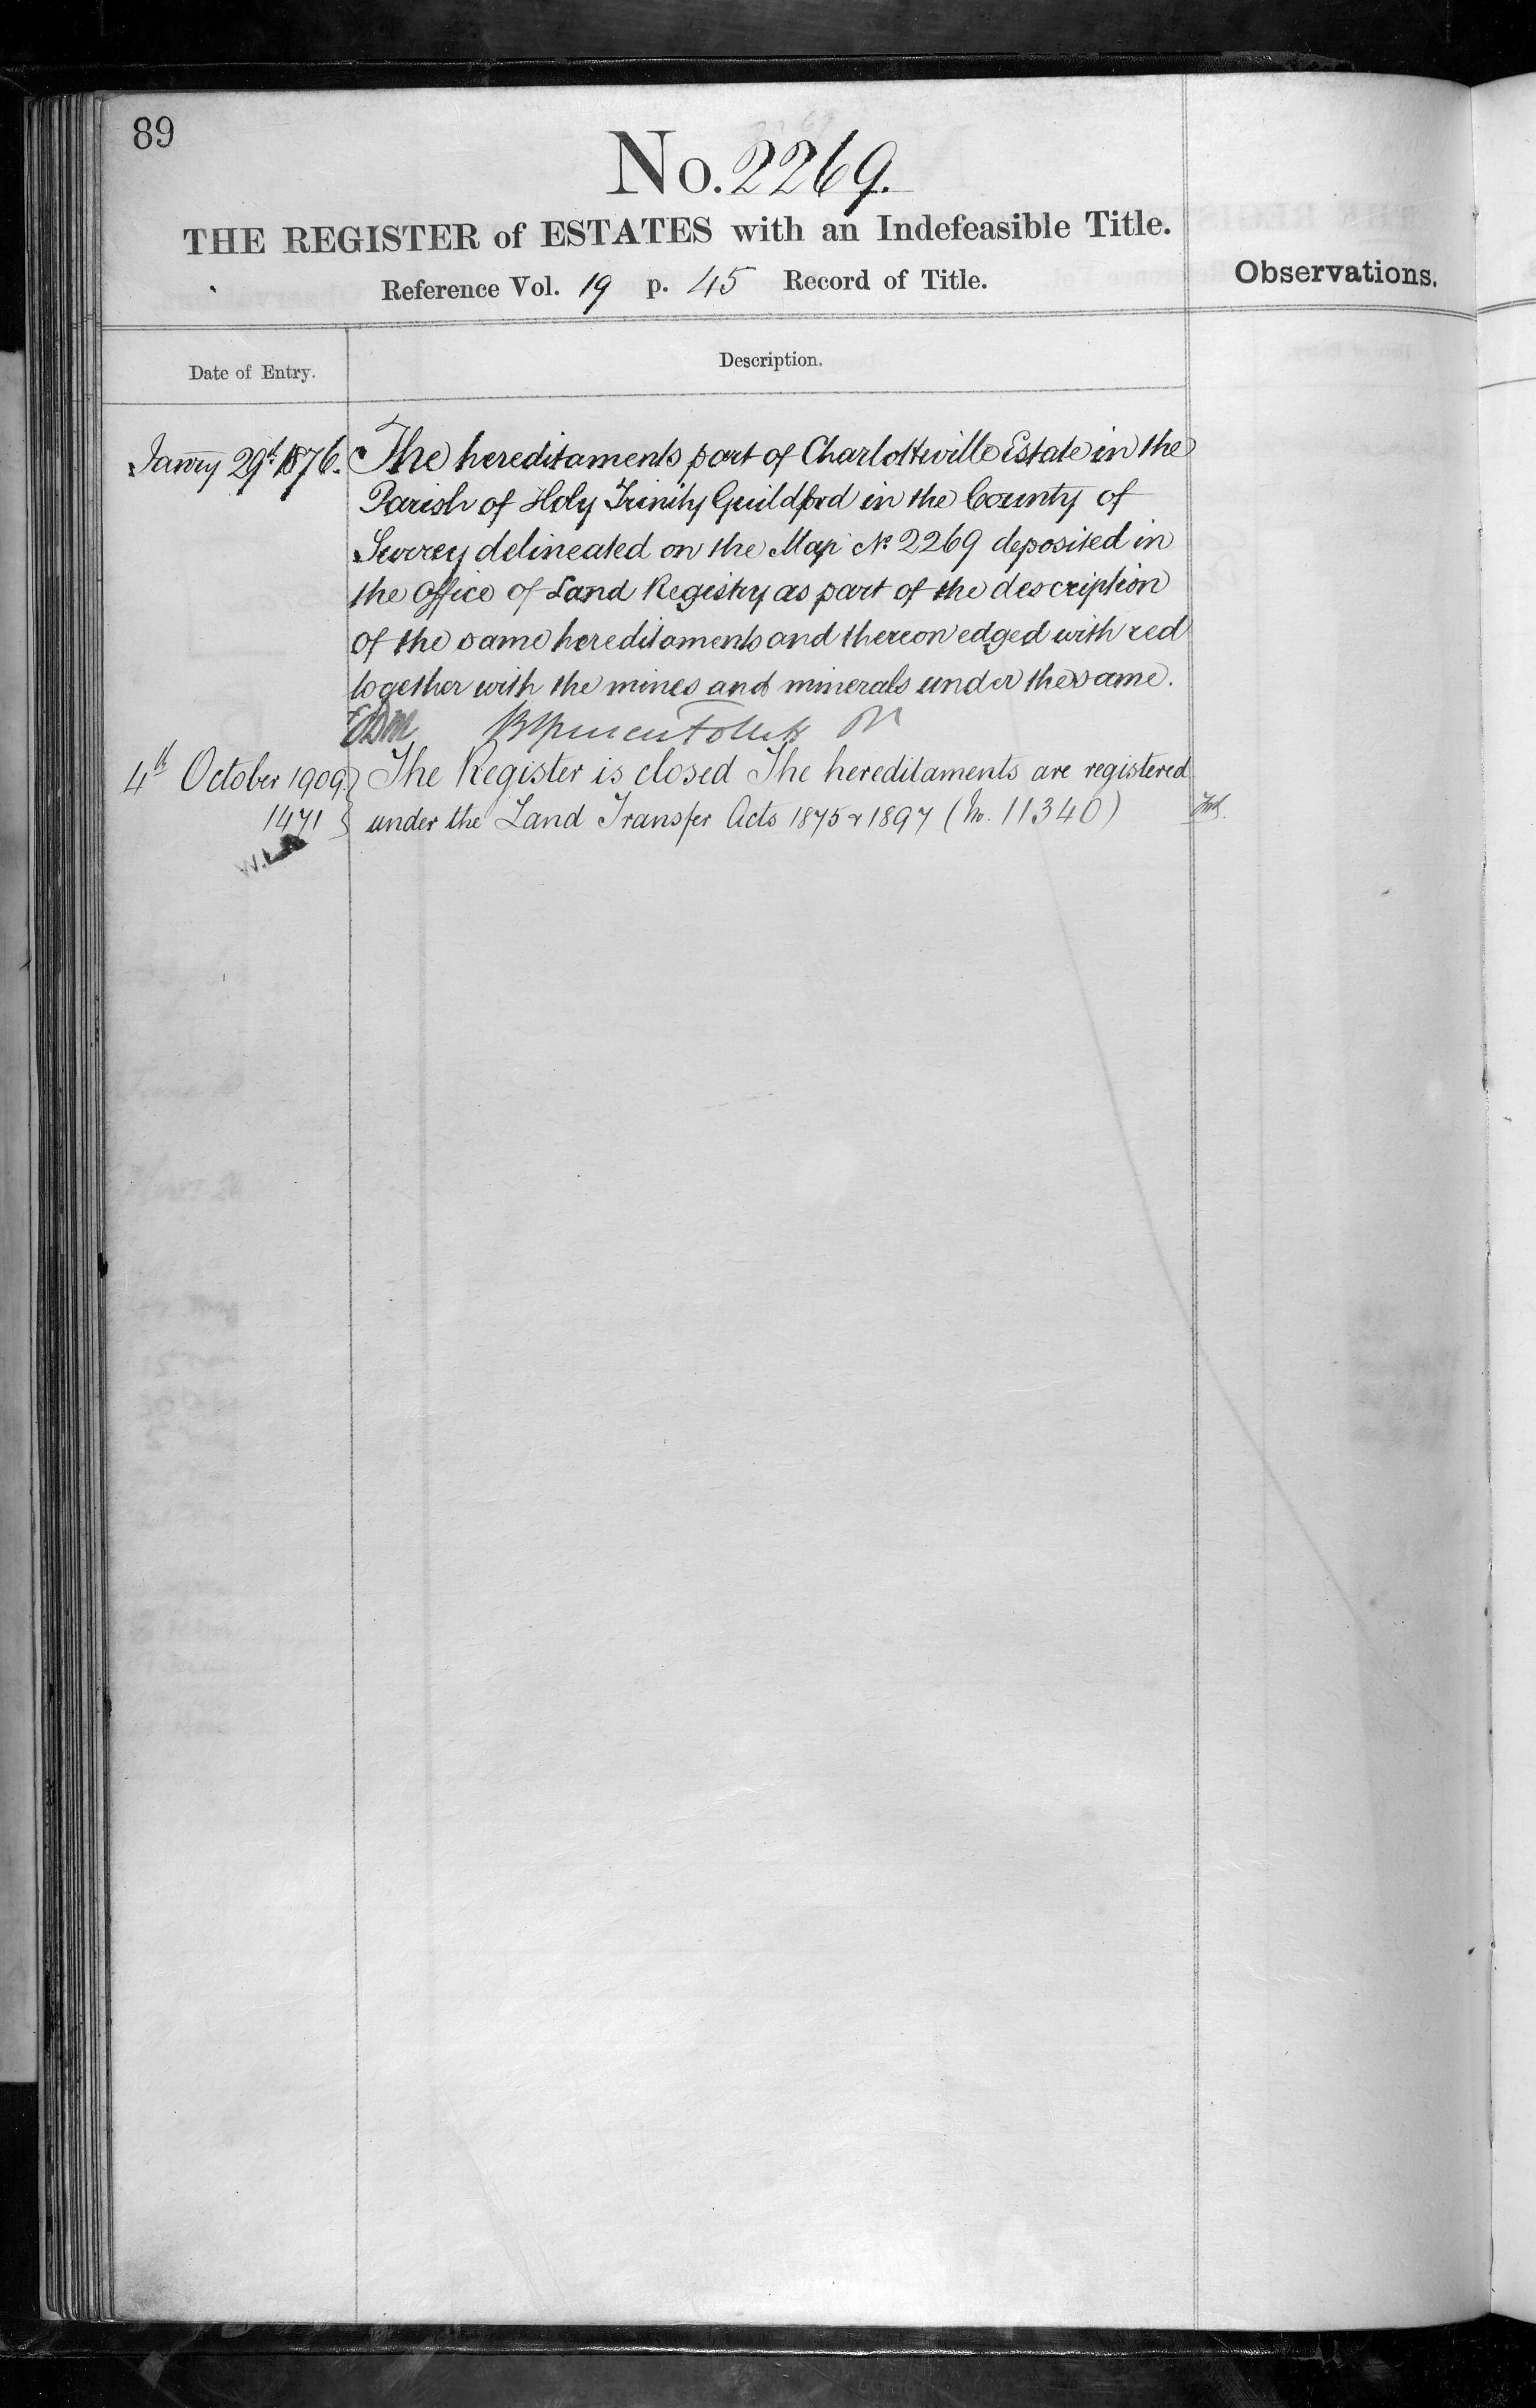 89
No. 2269.
THE REGISTER of ESTATES with an Indefeasible Title.
Reference Vol. 19 p. 45 Record of Title.
Observations.
Date of Entry.
Description.
Janry 29th 1876. The hereditaments part of Charlotteville Estate in the
Parish of Holy Trinity Guildford in the County of
Surrey delineated on the Map No 2269 deposited in
the Office of Land Registry as part of the description
of the same hereditaments and thereon edged with red
together with the mines and minerals under the same.
4th October 1909. The Register is closed The hereditaments are registered
1471 under the Land Transfer Acts 1875 & 1897 (No. 11340)